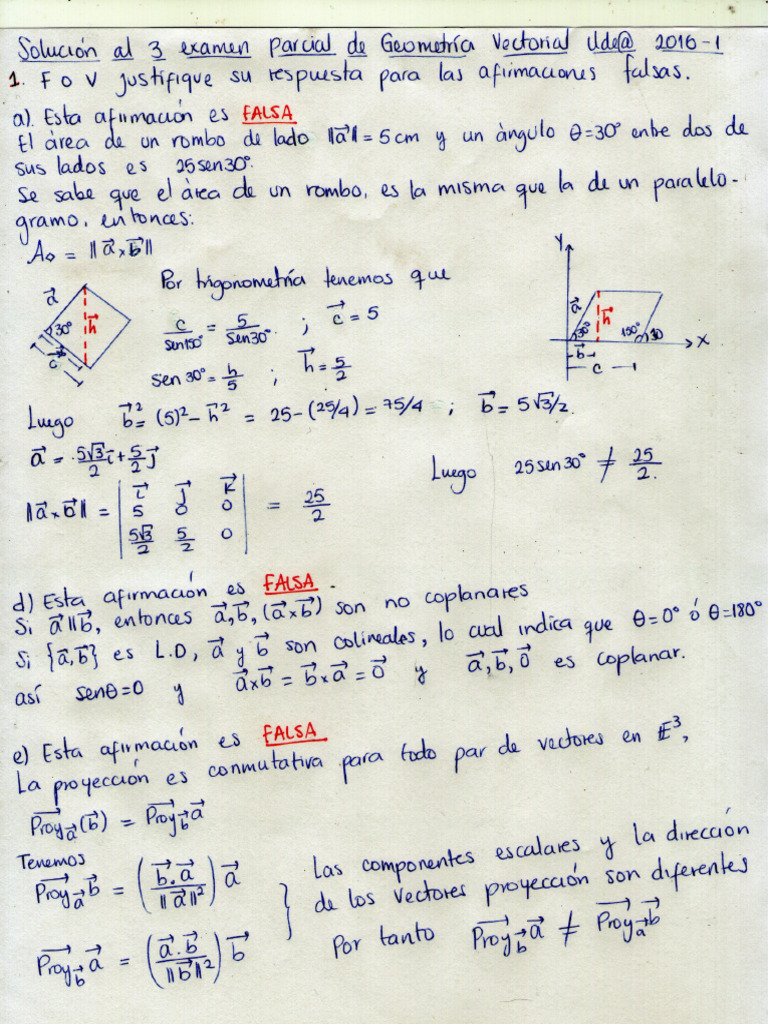 Solución al 3 examen parcial de Geometría Vectorial Ude@ 2016-1
1. F o V justifique su respuesta para las afirmaciones falsas.
a). Esta afirmación es FALSA
El área de un rombo de lado ‖a⃗‖ = 5 cm y un ángulo θ=30° entre dos de
sus lados es 25sen30°.
Se sabe que el área de un rombo, es la misma que la de un paralelo-
gramo, entonces:
A◇ = ‖a⃗ x b⃗‖
Por trigonometría tenemos que
a⃗
30°
h⃗
c
c/sen150° = 5/sen30° ; c⃗ = 5
sen 30° = h/5 ; h⃗ = 5/2
Y
a⃗
h⃗
30°
150°
30
X
b⃗
c
Luego b⃗² = (5)² - h⃗² = 25 - (25/4) = 75/4 ; b⃗ = 5√3/2.
a⃗ = 5√3/2 i⃗ + 5/2 j⃗
Luego 25sen30° ≠ 25/2.
‖a⃗ x b⃗‖ = | i⃗ j⃗ k⃗ |
| 5 0 0 | = 25/2
| 5√3/2 5/2 0 |
d) Esta afirmación es FALSA
Si a⃗ ‖ b⃗, entonces a⃗, b⃗, (a⃗ x b⃗) son no coplanares
Si {a⃗, b⃗} es L.D, a⃗ y b⃗ son colineales, lo cual indica que θ=0° ó θ=180°
así senθ=0 y a⃗ x b⃗ = b⃗ x a⃗ = 0⃗ y a⃗, b⃗, 0⃗ es coplanar.
e) Esta afirmación es FALSA
La proyección es conmutativa para todo par de vectores en E³,
Proy a⃗ (b⃗) = Proy b⃗ a⃗
Tenemos
Proy a⃗ b⃗ = (b⃗ . a⃗ / ‖a⃗‖²) a⃗
Proy b⃗ a⃗ = (a⃗ . b⃗ / ‖b⃗‖²) b⃗
Las componentes escalares y la dirección
de los vectores proyección son diferentes
Por tanto Proy b⃗ a⃗ ≠ Proy a⃗ b⃗